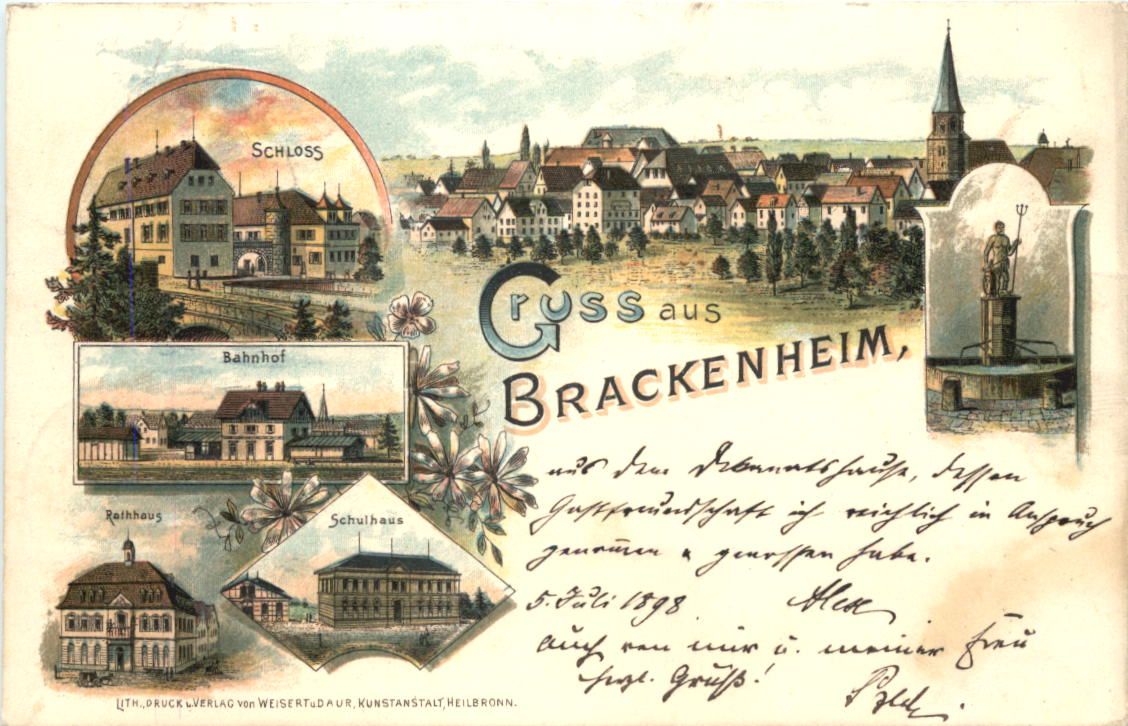 SCHLOSS
Gruss aus
BRACKENHEIM,
Bahnhof
Rathhaus
Schulhaus
aus dem Dekanatshause, dessen
Gastfreundschaft ich reichlich in Anspruch
genommen & genossen habe.
5. Juli 1898 Alex
auch von mir u. meiner Frau
herzl. Grüß!
LITH., DRUCK u. VERLAG von WEISERT u. DAUR, KUNSTANSTALT, HEILBRONN.